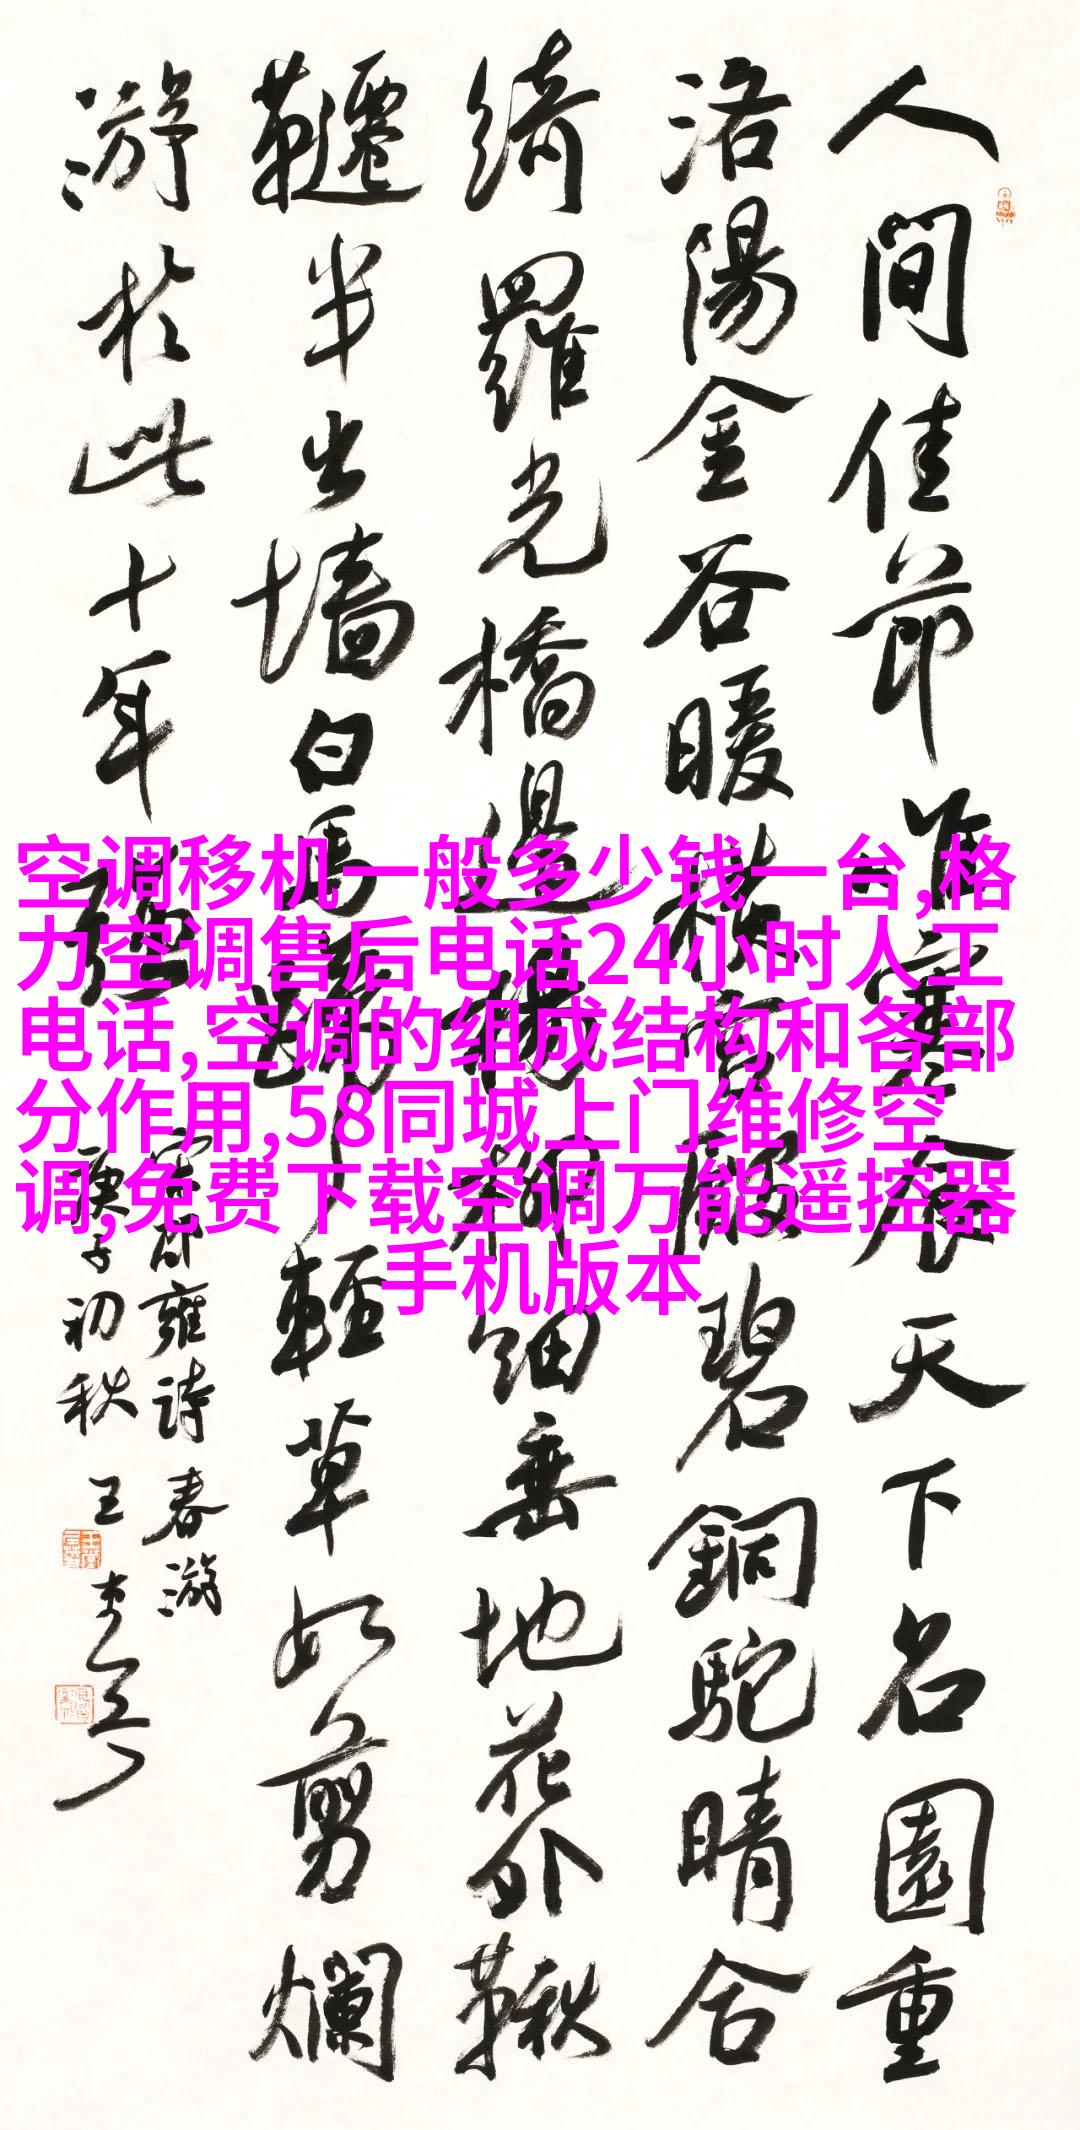 人間佳節唯寒食天下名園重
洛陽金谷暖橫宮殿碧銅駝晴合
綺羅光橋邊楊柳細垂地花外鞦
韆半出墻白馬蹄輕草如剪爛
游於此十年強
宋邵雍詩春游
庚子初秋 王
空调移机一般多少钱一台,格
力空调售后电话24小时人工
电话,空调的组成结构和各部
分作用,58同城上门维修空
调,免费下载空调万能遥控器
手机版本